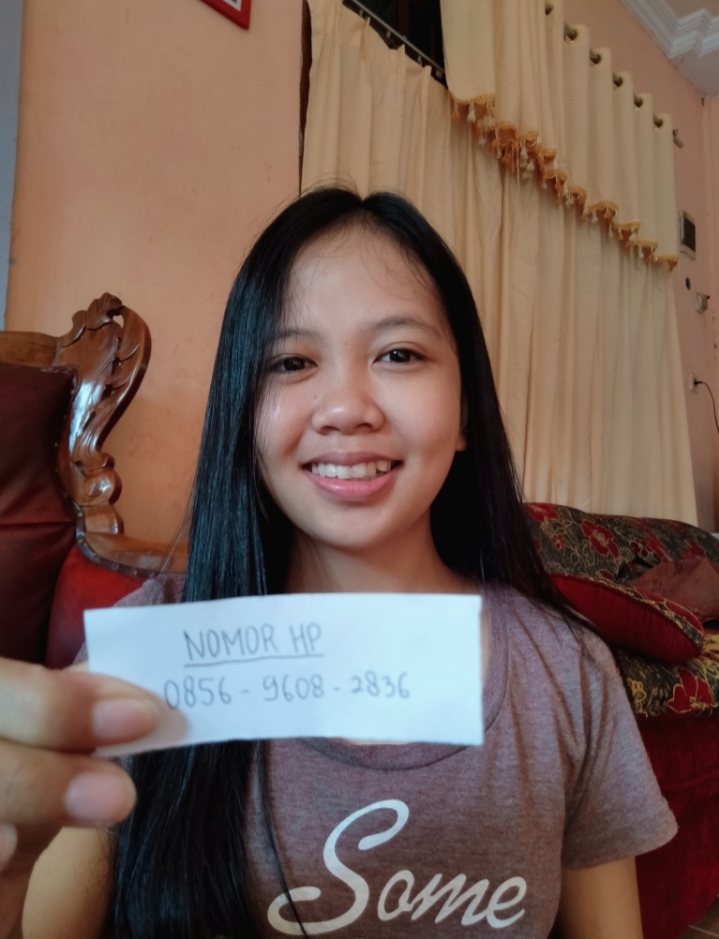 NOMOR HP
0856 - 9608 - 2836
Some